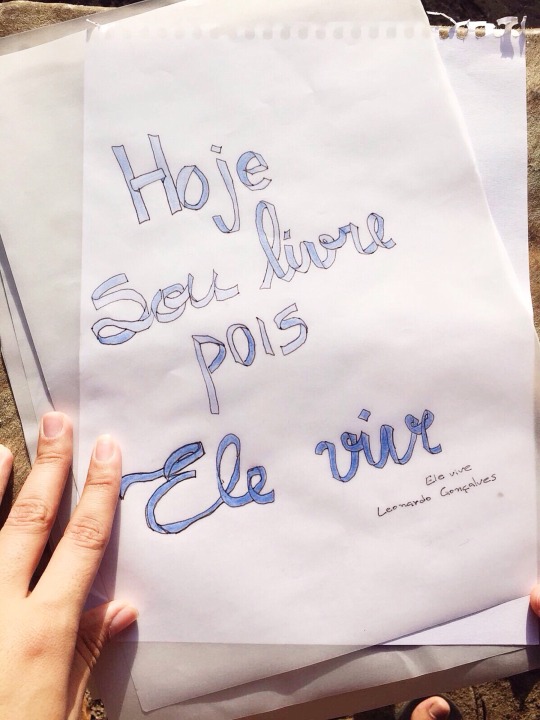 Hoje
Sou livre
pois
Ele vive
Ele vive
Leonardo Gonçalves